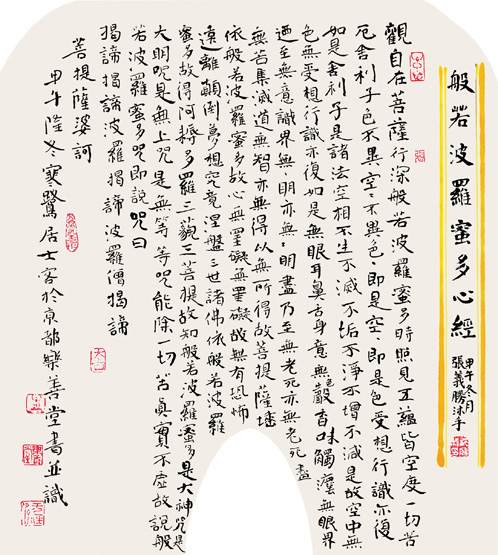 般若波羅蜜多心經
甲午冬月
張義勝沐手
觀自在菩薩行深般若波羅蜜多時照見五蘊皆空度一切苦
厄舍利子色不異空〻不異色〻即是空〻即是色受想行識亦復
如是舍利子是諸法空相不生不滅不垢不淨不增不減是故空中無
色無受想行識亦復如是無眼耳鼻舌身意無色聲香味觸法無眼界
廼至無意識界無〻明亦無〻明盡乃至無老死亦無老死盡
無苦集滅道無智亦無得以無所得故菩提薩埵
依般若波羅蜜多故心無罣礙無罣礙故無有恐怖
遠離顛倒夢想究竟涅盤三世諸佛依般若波羅
蜜多故得阿耨多羅三藐三菩提故知般若波羅蜜多是大神咒是
大明咒是無上咒是無等等咒能除一切苦真實不虛故說般
若波羅蜜多咒即說咒曰
揭諦揭諦波羅揭諦波羅僧揭諦
菩提薩婆訶
甲午隆冬寒鷺居士客於京都樂善堂書並識